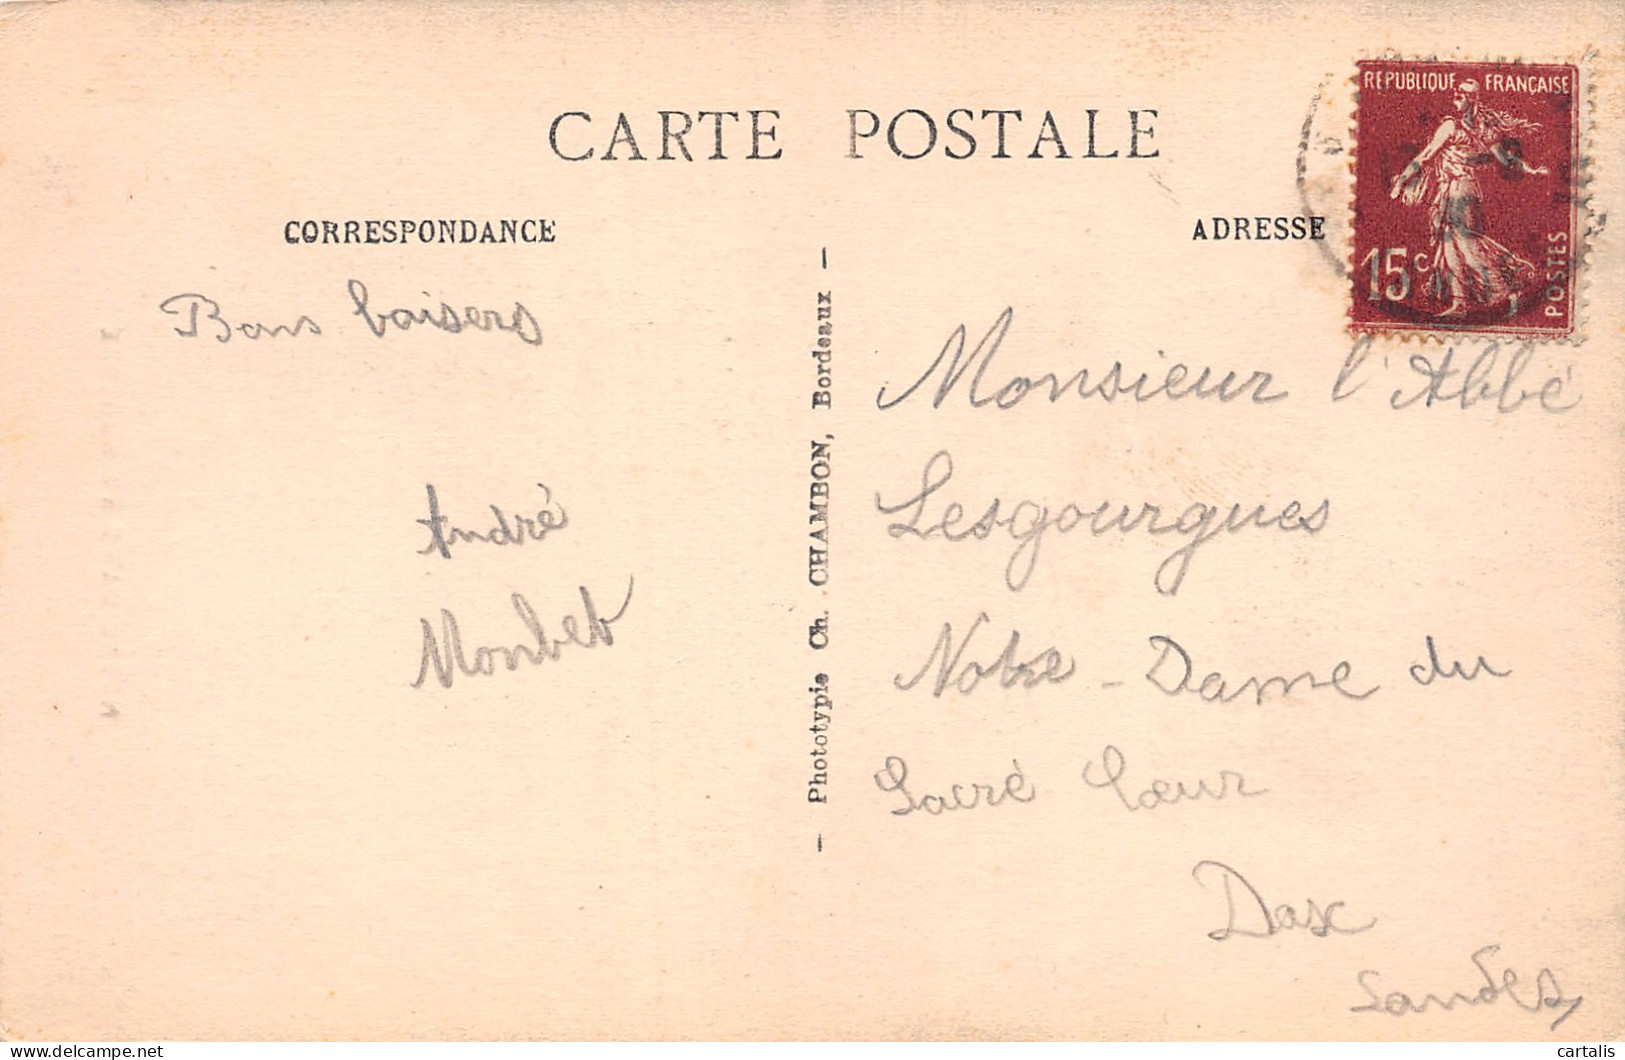 CARTE POSTALE
CORRESPONDANCE
Bons baisers
André
Monbet
— Phototypie Ch. CHAMBON, Bordeaux —
ADRESSE
REPUBLIQUE FRANÇAISE
15c
POSTES
Monsieur l'Abbé
Lesgourgues
Notre-Dame du
Sacré Cœur
Dax
Landes
cartalis